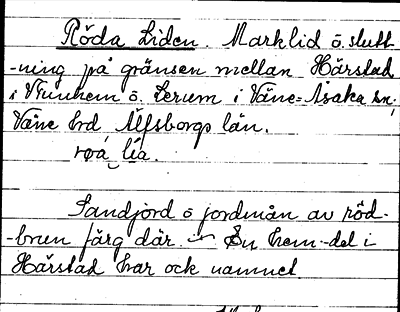 Röda Liden. Marklid o. slutt-
-ning på gränsen mellan Härstad
i Trunnem o. Lerum i Väne-Åsaka sn.,
Väne hrd Älfsborgs län.
röá lía.
Sandjord o jordmån av röd-
-brun färg där. En hem-del i
Härstad har ock namnet.